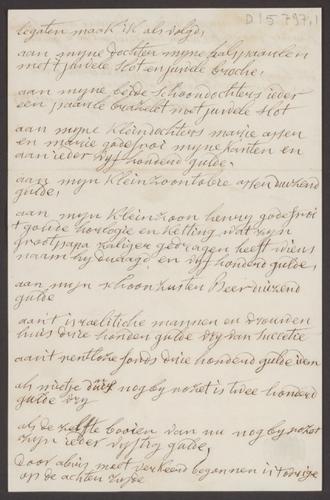 D15797,1
legaten maak ik als volgd,
aan myne dochter myne halspaarlen
met juwele slot en juwele broche,
aan myne beide schoondochters ieder
een paarle brazelet met juwele slot
aan myne kleindochters marie assen
en marie godefroi myne kanten en
aan ieder vyf honderd gulde,
aan myn kleinzoon tobie assen duizend
gulde,
aan myn kleinzoon henry godefroi
t goude horlogie en ketting wat zyn
grootpapa zaliger gedragen heeft wiens
naam hy draagd en vyf honderd gulde,
aan myn schoonzusters Beer duizend
gulde
aan t israelitiche mannen en vrouwen
huis drie honderd gulde vry van succetie
aan t renteloze fonds drie honderd gulde idem
als mietje nog by me zoket is twee honderd
gulde vry
als de zelfde booien van nu nog by
zyn ieder vyftig gulde,
Door abuis meet verkeerd begonnen is t overige
op de achter zyde